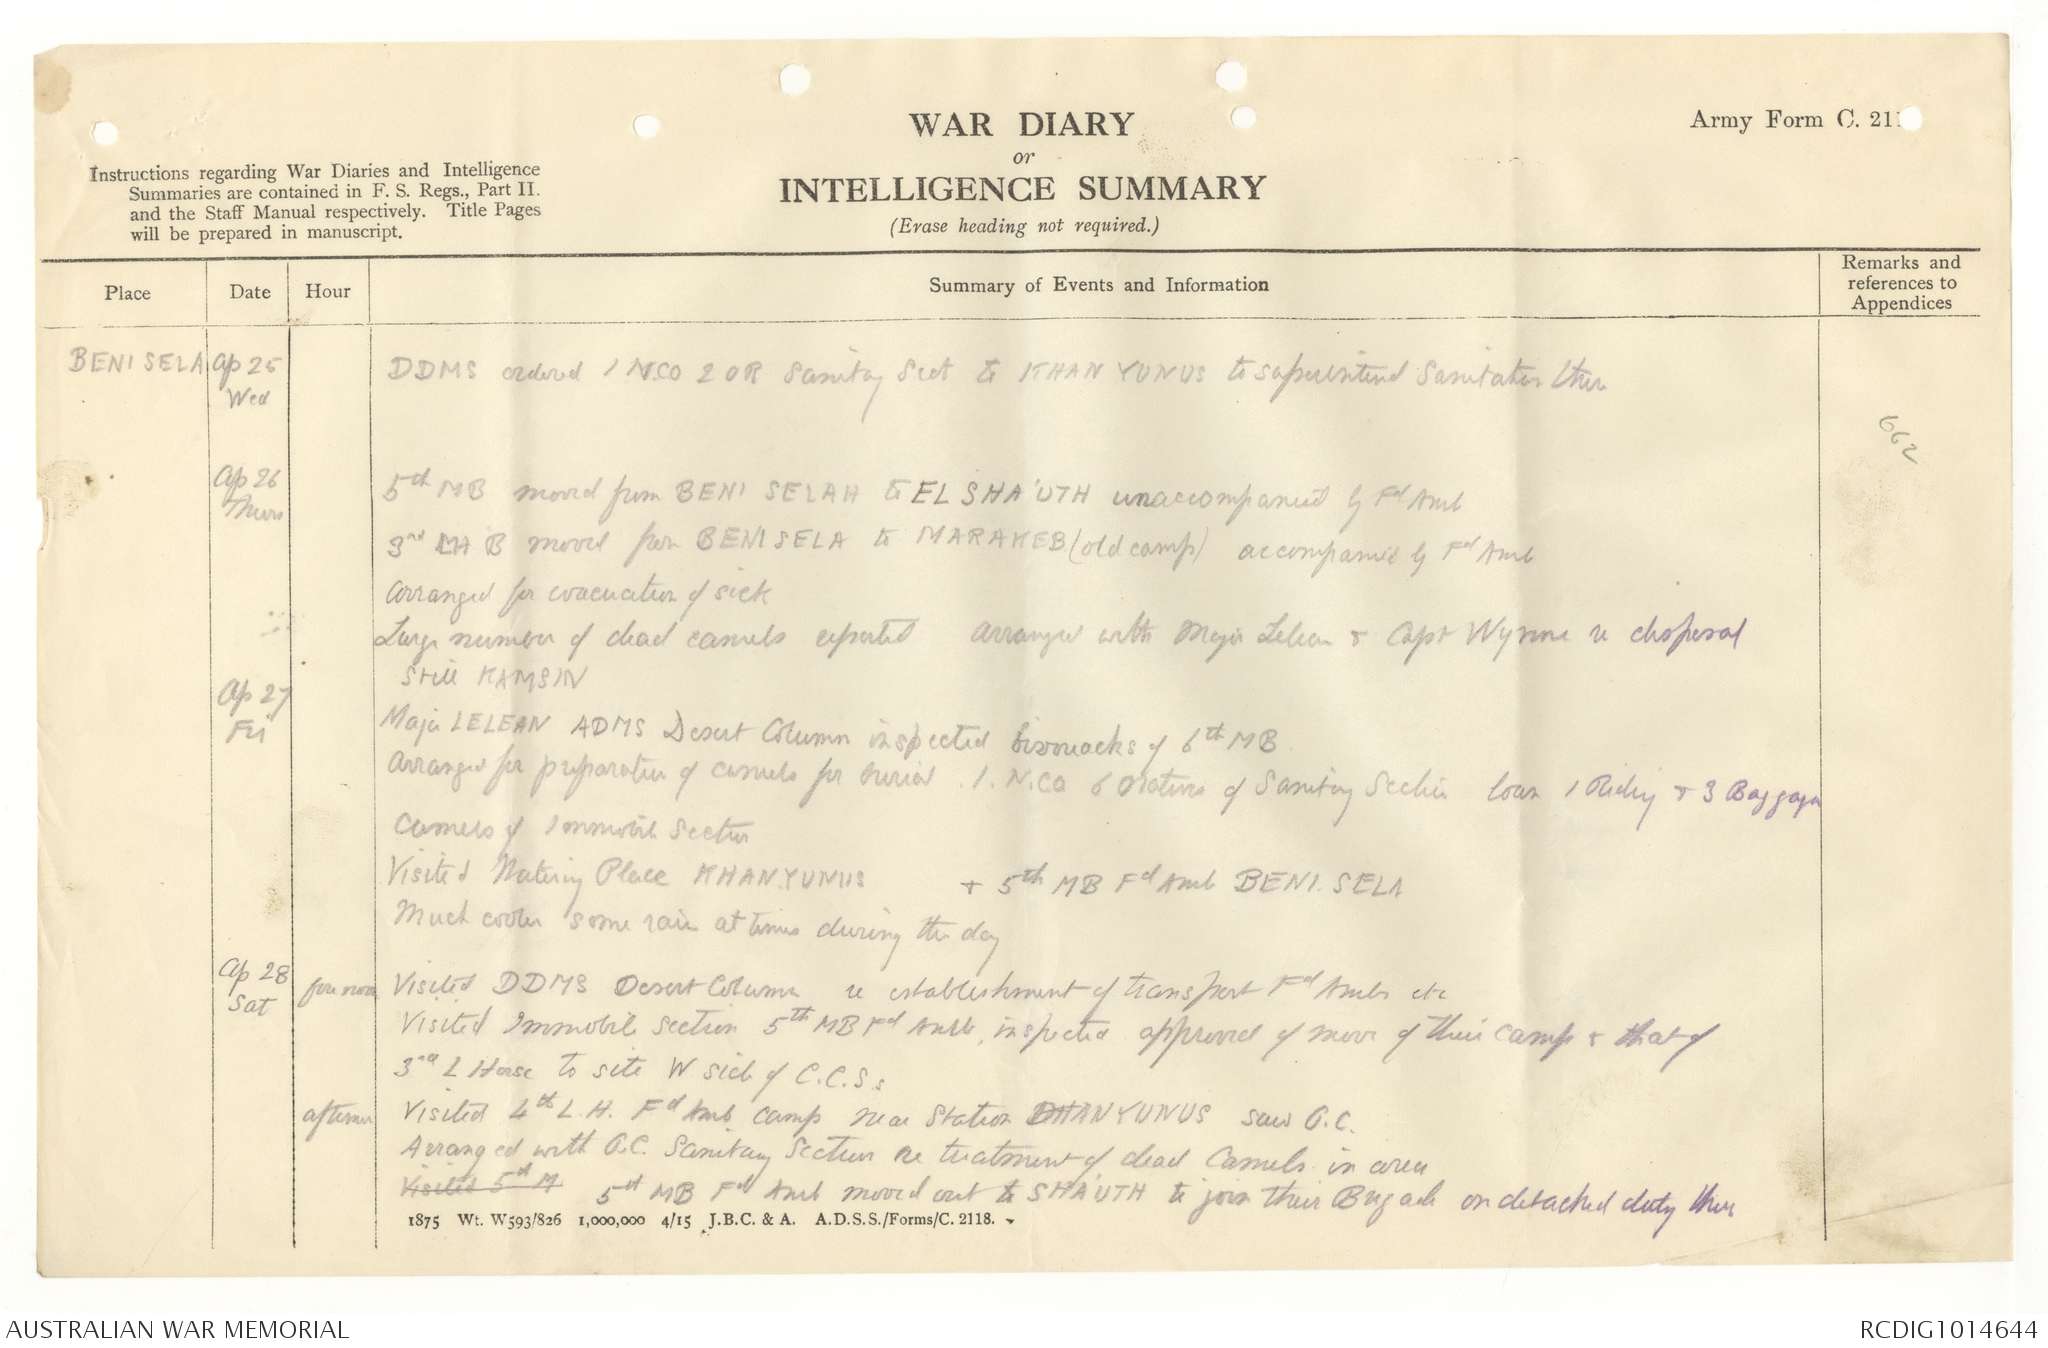 WAR DIARY
or
INTELLIGENCE SUMMARY
(Erase heading not required.)
Army Form C. 211
Instructions regarding War Diaries and Intelligence
Summaries are contained in F. S. Regs., Part II.
and the Staff Manual respectively. Title Pages
will be prepared in manuscript.
Place Date Hour Summary of Events and Information Remarks and references to Appendices
BENI SELA Ap 25 DDMS ordered 1 NCO 2 OR Sanitay Sect to KHAN YUNUS to superintend Sanitation there
Wed
662
Ap 26 5th MB moved from BENI SELAH to EL SHA'UTH unaccompanied by Fd Amb
Thurs
3rd LH B moved from BENI SELA to MARAKEB (old camp) accompanied by Fd Amb
Arranged for evacuation of sick
Large number of dead camels reported arranged with Major Lelean & Capt Wynne re disposal
Still KAMSIN
Ap 27 Major LELEAN ADMS Desert Column inspected bivouacks of 6th MB
Fri
Arranged for preparation of camels for burial. 1 NCO 6 Natives of Sanitay Section loan 1 Riding & 3 Baggage
Camels of Immobile Section
Visited Watering Place KHAN YUNUS & 5th MB Fd Amb BENI SELA
Much cooler some rain at times during the day
Ap 28 fore noon Visited DDMS Desert Column re establishment of transport Fd Ambs etc
Sat
Visited Immobile section 5th MB Fd Amb, inspected approved of move of their camp & that of
3rd L Horse to site W side of C.C.Ss
afternn Visited 4th L.H. Fd Amb camp near Station KHAN YUNUS saw O.C.
Arranged with O.C. Sanitay Section re treatment of dead Camels in area
Visited 5th M 5th MB Fd Amb moved out to SHA'UTH to join their Brigade on detached duty there
1875 Wt. W593/826 1,000,000 4/15 J.B.C. & A. A.D.S.S./Forms/C. 2118.
AUSTRALIAN WAR MEMORIAL
RCDIG1014644